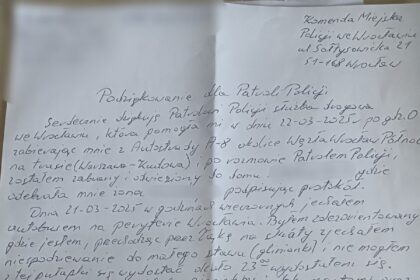 Komenda Miejska
Policji we Wrocławiu
ul Sołtysowicka 21
51-168 Wrocław
Podziękowanie dla Patrolu Policji
Serdecznie dziękuję Patrolowi Policji służba drogowa
we Wrocławiu, która pomogła mi w dniu 22-03-2025 po godz. 0
zabierając mnie z Autostrady A-8 okolice Węzła Wrocław Północ
na trasie (Warszawa-Kudowa) i po rozmowie Patrolem Policji,
zostałem zabrany i odwieziony do domu gdzie
odebrała mnie żona podpisując protokół.
Dnia 21-03-2025 w godzinach wieczornych jechałem
autobusem na peryferie Wrocławia. Byłem zdezorientowany
gdzie jestem, przechodząc przez łąkę na skróty zjechałem
niespodziewanie do małego stawu (glinianki) nie mogłem
z tej pułapki się wydostać około 23⁰⁰ wydostałem się